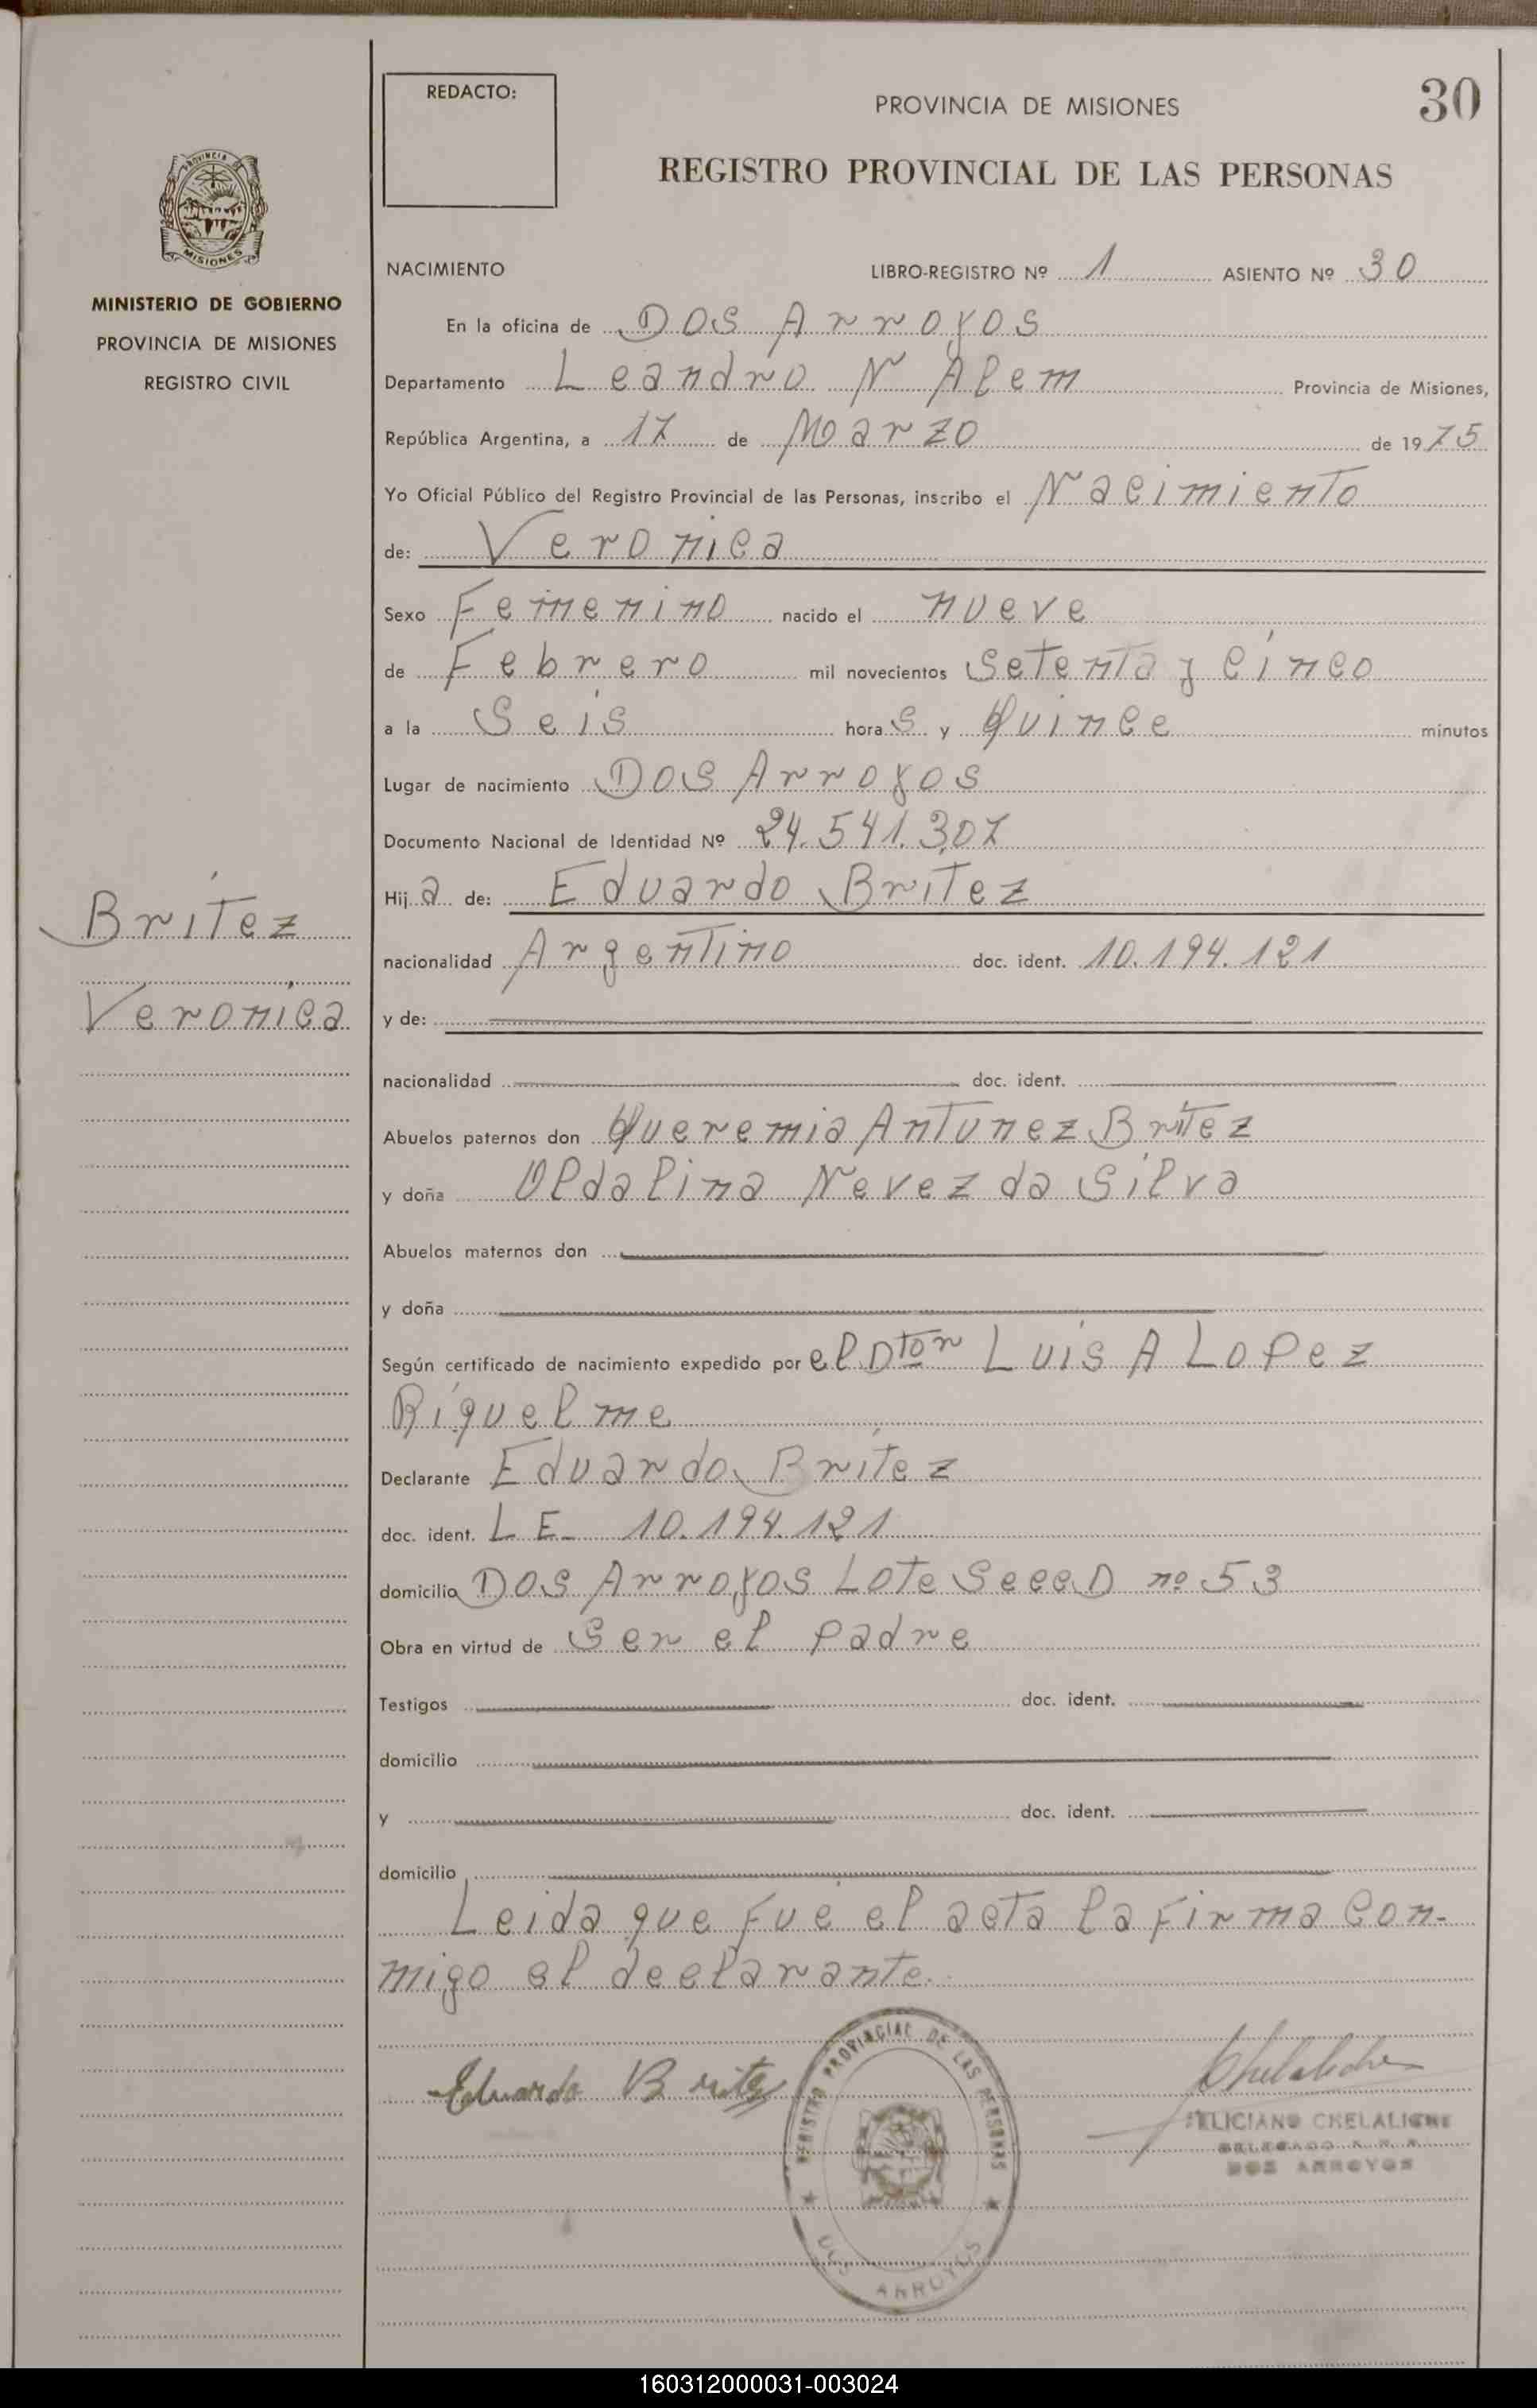 REDACTO:
PROVINCIA DE MISIONES
30
REGISTRO PROVINCIAL DE LAS PERSONAS
PROVINCIA DE
MISIONES
MINISTERIO DE GOBIERNO
PROVINCIA DE MISIONES
REGISTRO CIVIL
NACIMIENTO LIBRO-REGISTRO Nº 1 ASIENTO Nº 30
En la oficina de Dos Arroyos
Departamento Leandro N Alem Provincia de Misiones,
República Argentina, a 17 de Marzo de 1975
Yo Oficial Público del Registro Provincial de las Personas, inscribo el Nacimiento
de: Veronica
Sexo Femenino nacido el nueve
de Febrero mil novecientos setenta y cinco
a la Seis horas y Quince minutos
Lugar de nacimiento Dos Arroyos
Documento Nacional de Identidad Nº 24.541.307
Hija de: Eduardo Britez
Britez
nacionalidad Argentino doc. ident. 10.194.121
Veronica
y de:
nacionalidad doc. ident.
Abuelos paternos don Queremia Antunez Britez
y doña Oldalina Nevez da Silva
Abuelos maternos don
y doña
Según certificado de nacimiento expedido por el Dtor Luis A Lopez
Riquelme
Declarante Eduardo Britez
doc. ident. L E- 10.194.121
domicilio Dos Arroyos Lote Secc D nº 53
Obra en virtud de Ser el padre
Testigos doc. ident.
domicilio
y doc. ident.
domicilio
Leida que fué el acta la firma con-
migo el declarante.
Eduardo Britez
REGISTRO PROVINCIAL DE LAS PERSONAS
DOS ARROYOS
FELICIANO CHELALICHE
DELEGADO R. P. P.
DOS ARROYOS
160312000031-003024